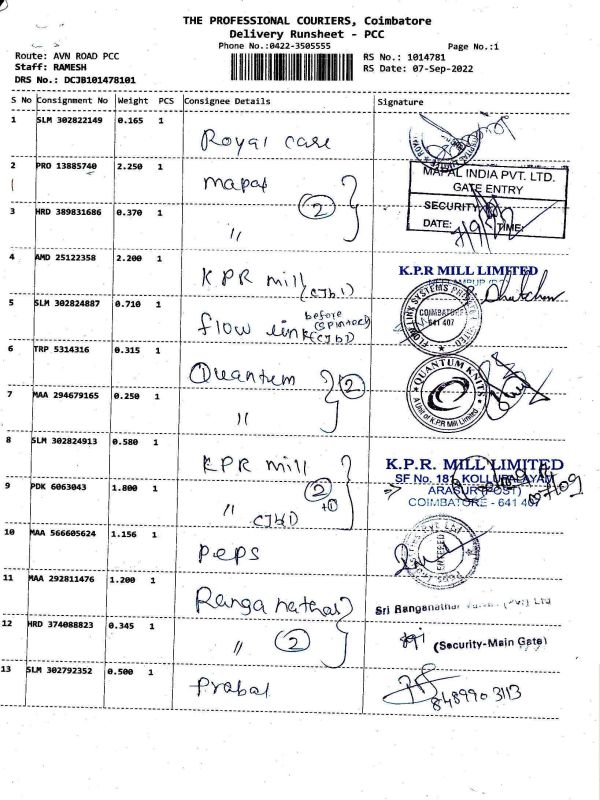 THE PROFESSIONAL COURIERS, Coimbatore
Delivery Runsheet - PCC
Phone No.:0422-3505555
Page No.:1
Route: AVN ROAD PCC
RS No.: 1014781
Staff: RAMESH
RS Date: 07-Sep-2022
DRS No.: DCJB101478101
S No Consignment No Weight PCS Consignee Details Signature
1 SLM 302822149 0.165 1 Royal care
2 PRO 13885740 2.250 1 mapal
MAPAL INDIA PVT. LTD.
GATE ENTRY
2
SECURITY
3 HRD 389831686 0.370 1 "
DATE: 7/9/22 TIME:
4 AMD 25122358 2.200 1 KPR mill (CJb1)
K.P.R MILL LIMITED
5 SLM 302824887 0.710 1 flow link before (CJb1)
FLOW LINK SYSTEMS PRIVATE LIMITED
COIMBATORE
641 407
6 TRP 5314316 0.315 1 Quantum
2
QUANTUM KNITS
A Unit of K.P.R Mill Limited
7 MAA 294679165 0.250 1 "
8 SLM 302824913 0.580 1 KPR mill
K.P.R. MILL LIMITED
SF No. 181, KOLLUPALAYAM
9 PDK 6063043 1.800 1 " CJb1
2
+1
ARASUR (POST)
COIMBATORE - 641 407
07/09
10 MAA 566605624 1.156 1 peps
11 MAA 292811476 1.200 1 Ranganathar
Sri Ranganathar Valves (Pvt) Ltd
12 HRD 374088823 0.345 1 "
2
(Security-Main Gate)
13 SLM 302792352 0.500 1 Prabal
8489903113